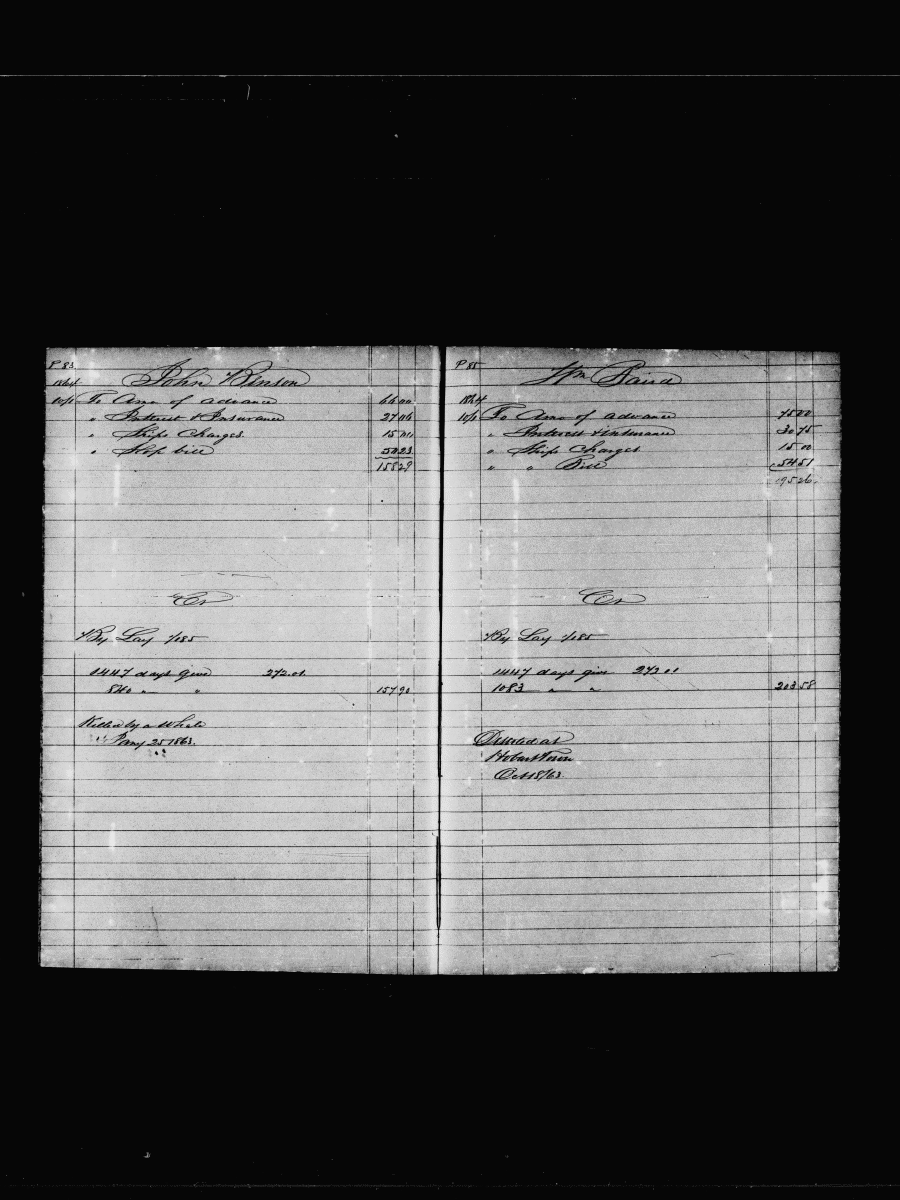 P 83
John Benson
1864
10/1 To Amo of advance 66 00
" Interest & Insurance 27 06
" Ships Charges 15 00
" Slop bill 50 23
158 29
Cr
By Lay 1/185
1447 days give 272.01
840 " " 157 90
Killed by a Whale
1863.
P 85
Wm Baird
1864
10/1 To Amo of advance 75 00
" Interest & insurance 30 75
" Ships Charges 15 00
" " Bill 54 51
195 26
Cr
By Lay 1/185
1447 days give 272 01
1083 " " 203 58
Deserted at
Hobart Town
Oct 18/63